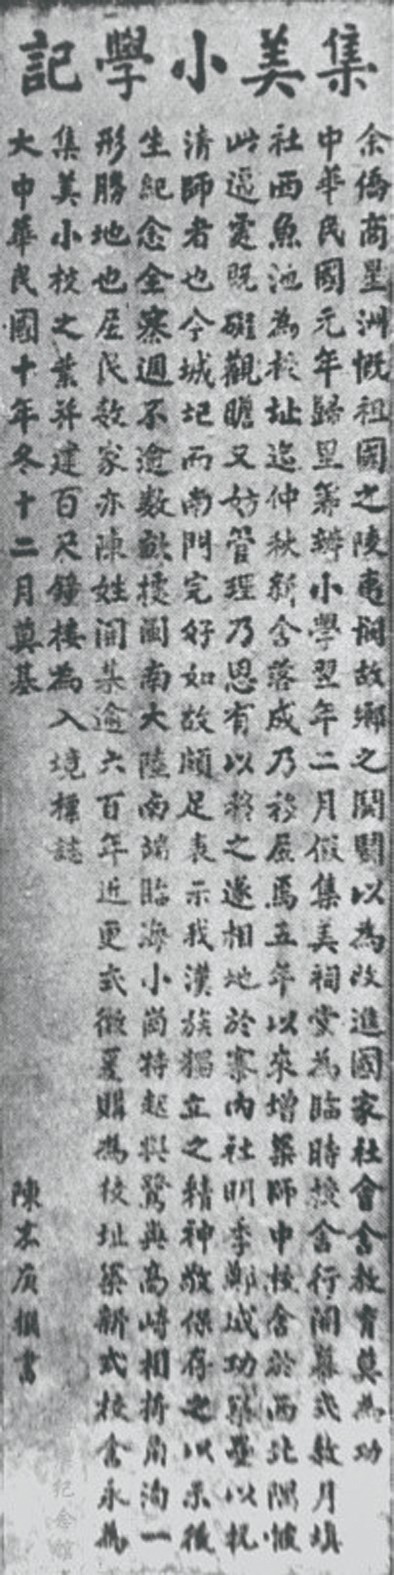 集美小學記
余僑商星洲慨祖國之陵夷憫故鄉之鬩鬪以為改進國家社會舍教育莫為功
中華民國元年歸里籌辦小學翌年二月假集美祠堂為臨時校舍行開幕式數月填
社西魚池為校址迨仲秋新舍落成乃移居焉五年以來增築師中校舍於西北隅惟
此逼處既礙觀瞻又妨管理乃思有以移之遂相地於寨內社明季鄭成功築壘以抗
清師者也今城圮而南門完好如故頗足表示我漢族獨立之精神敬保存之以示後
生紀念全寨週不逾數畝擅閩南大陸南端臨海小崗特起與鷺與高崎相犄角洵一
形勝地也居民數家亦陳姓開集逾六百年近更式微爰購為校址築新式校舍永為
集美小校之業并建百尺鐘樓為入境標誌
大中華民國十年冬十二月奠基
陳嘉庚撰書
紀念館